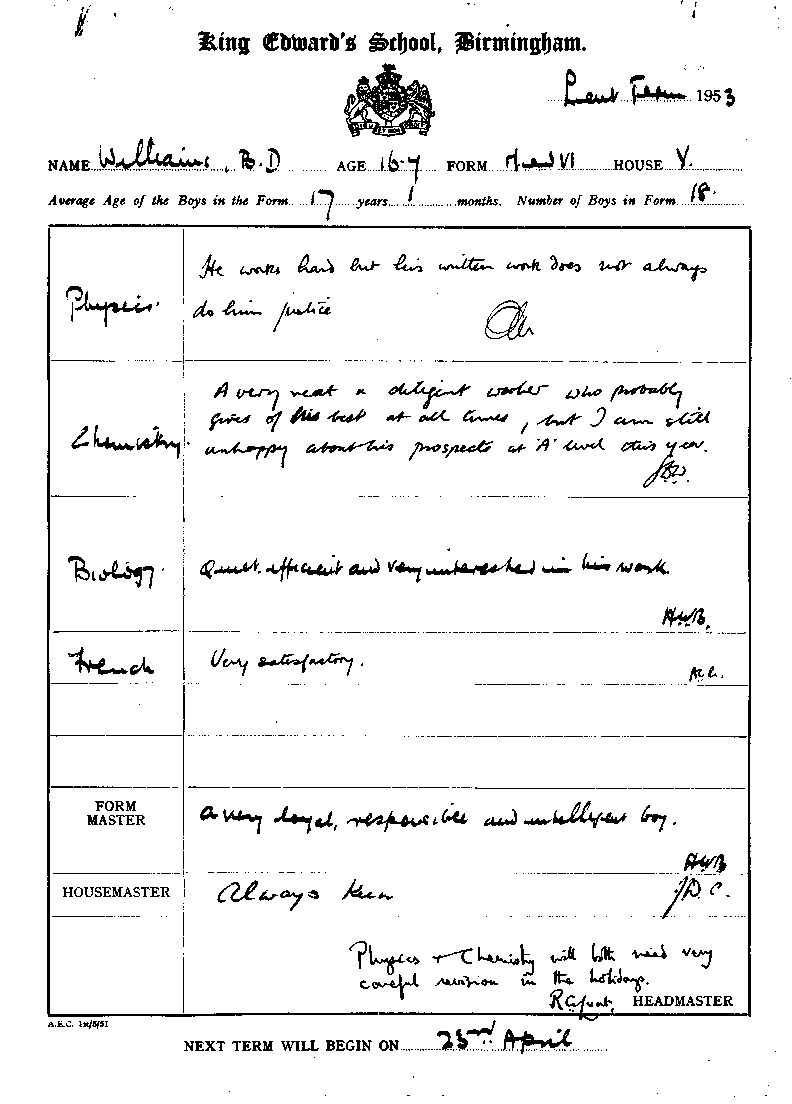 King Edward's School, Birmingham.
Lent Term 1953
NAME Williams, B.D AGE 16.7 FORM Med VI HOUSE V.
Average Age of the Boys in the Form 17 years 1 months. Number of Boys in Form 18.
Physics
He works hard but his written work does not always
do him justice
Chemistry
A very neat & diligent worker who probably
gives of his best at all times, but I am still
unhappy about his prospects at 'A' level this year.
Biology.
Quiet. efficient and very interested in his work.
HWB.
French
Very satisfactory.
FORM
MASTER
A very loyal, responsible and intelligent boy.
HWB
HOUSEMASTER
Always keen
J.D.C.
Physics + Chemistry will both need very
careful revision in the holidays.
HEADMASTER
A.E.C. 1m/5/51
NEXT TERM WILL BEGIN ON 23rd April